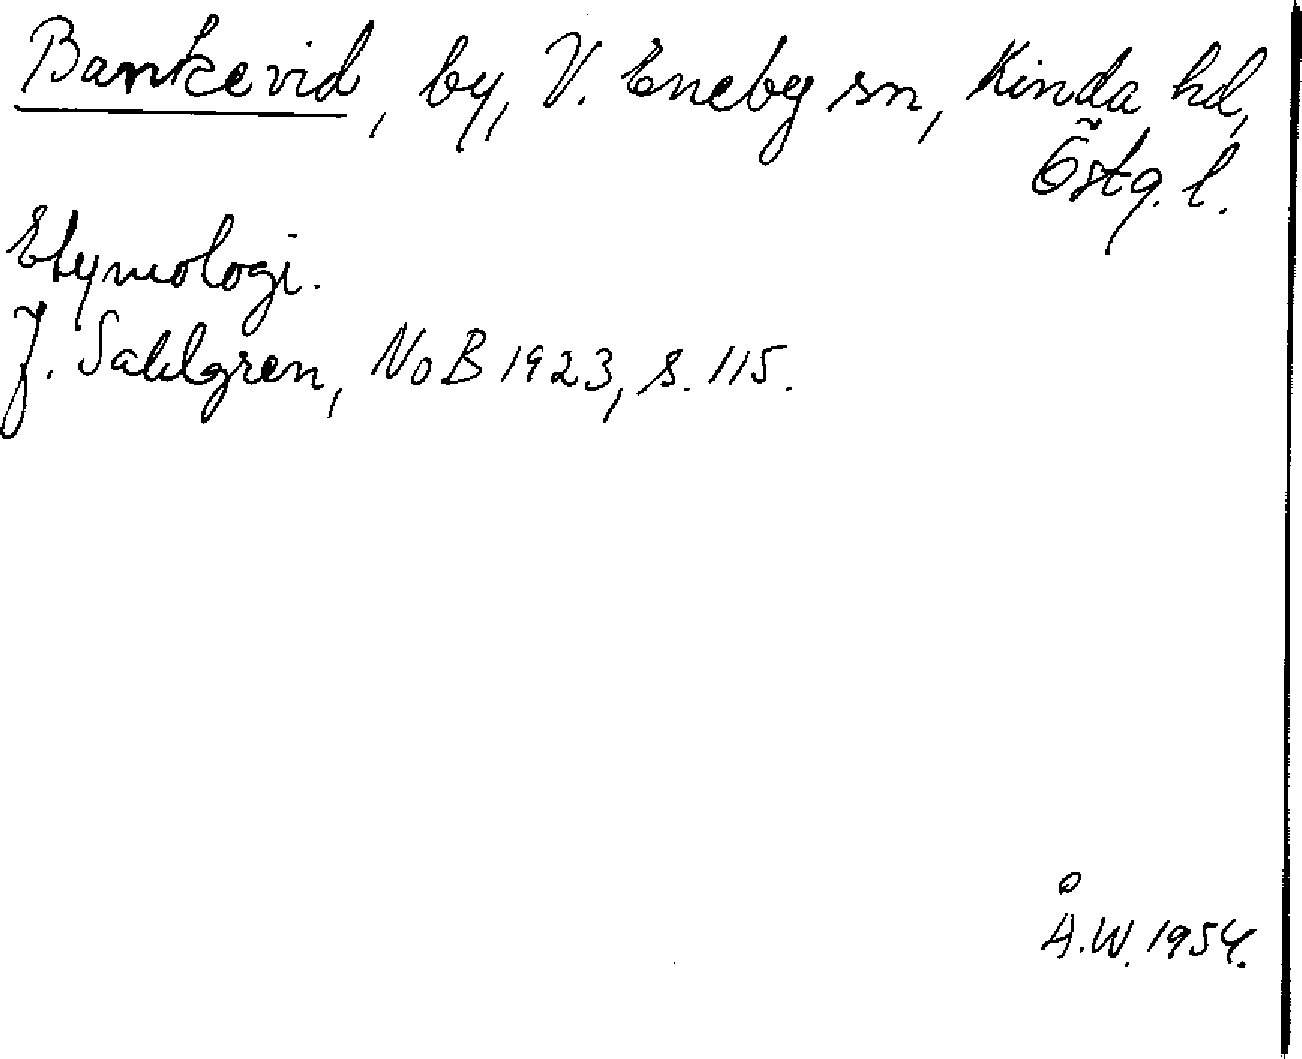 Bankevid, by, V. Eneby sn, Kinda hd,
Östg. l.
Etymologi.
J. Sahlgren, NoB 1923, s. 115.
Å.W. 1954.